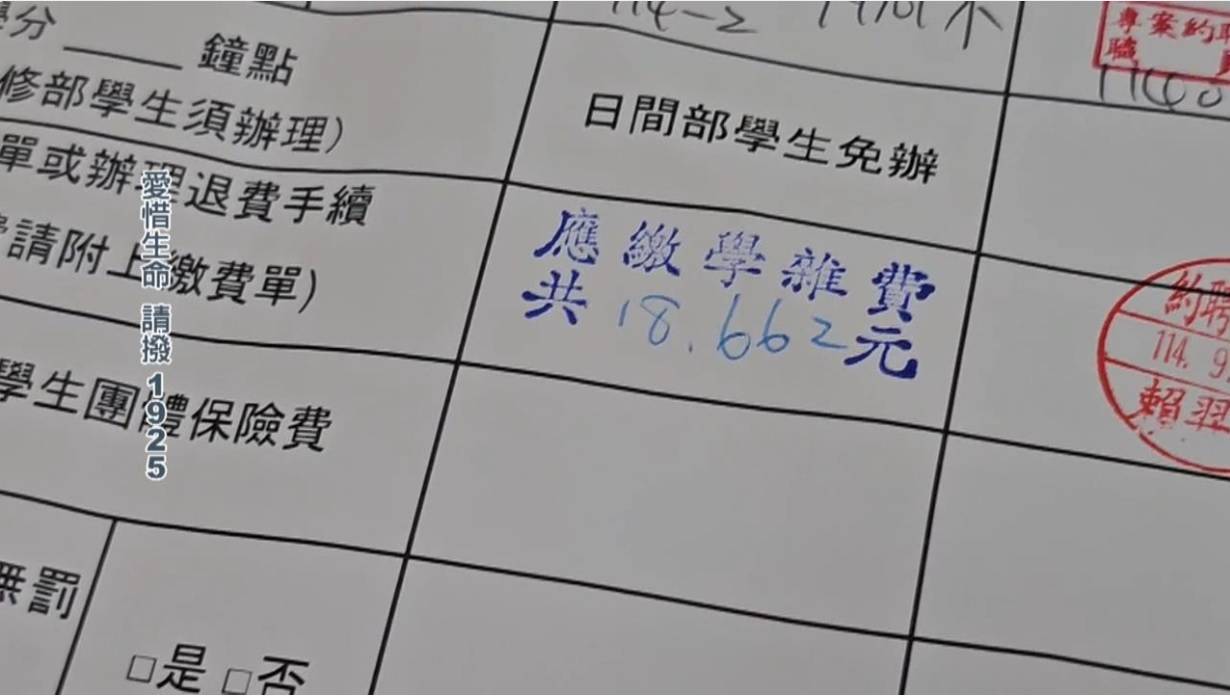 學分____鐘點
修部學生須辦理)
日間部學生免辦
單或辦理退費手續
請附上繳費單)
應繳學雜費
共18.662元
學生團體保險費
無罰
□是 □否
114-2
專案約聘
職員
約聘
114. 9.
賴翌
愛惜生命 請撥1925